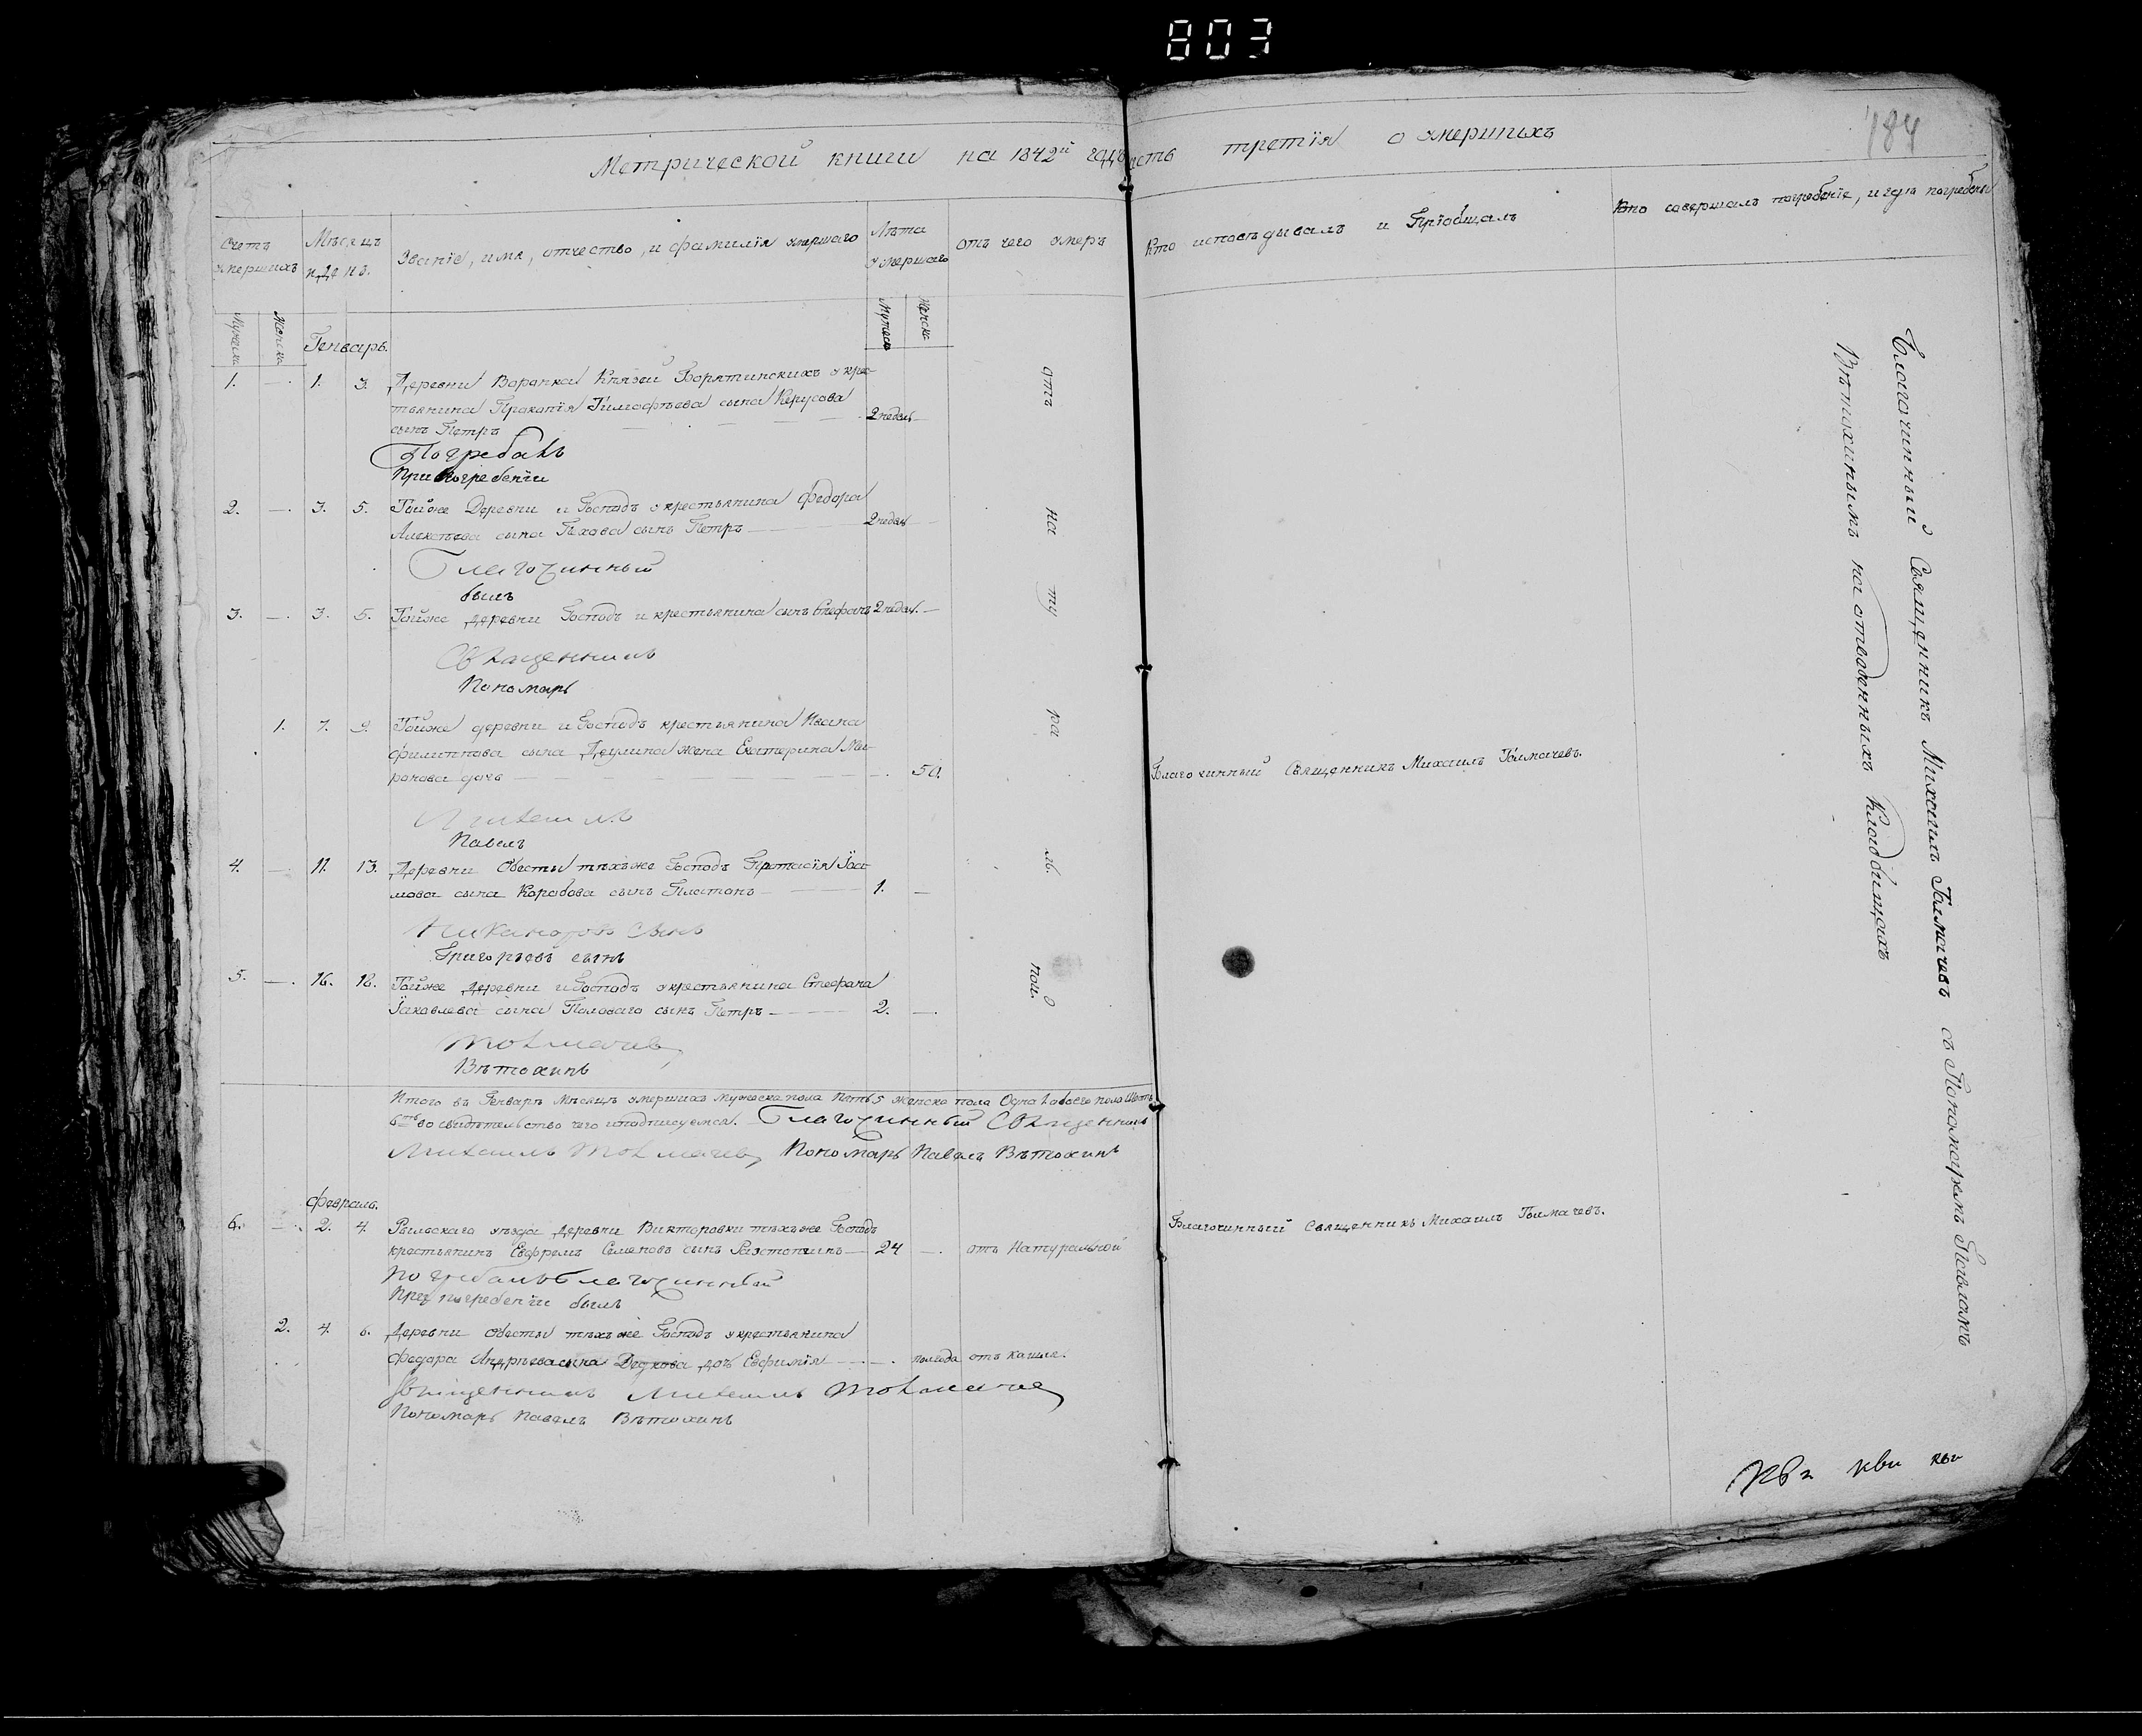 803
184
Метрической книги на 1842й годъ часть третїя о умершихъ
Счетъ умершихъ
Мѣсяцъ и день.
Званїе, имя, отчество, и фамилїя умершаго
Лѣта умершаго
отъ чего умеръ
Кто исповѣдывалъ и Прїобщалъ
Кто совершалъ погребенїе, и гдѣ погребены
Мужеска
Женска
Мужеск
Женска
Генварь.
1. — 1. 3. Деревни Воронка Князей Борятинскихъ у кре-
стьянина Прокопїя Тимофѣева сына
сынъ Петръ — 2 недел. —
Погребалъ
При погребенїи
2. — 3. 5. Тойже Деревни и Господъ у крестьянина Федора
Алексѣева сына сынъ Петръ — 2 недел. —
Благочинный
былъ
3. — 3. 5. Тойже деревни Господъ и крестьянина сынъ Стефанъ 2 недел. —
Священникъ
Пономарь
1. 7. 9. Тойже деревни и Господъ крестьянина Ивана
Филиппова сына Деулина жена Екатерина Ми-
ронова дочь — 50.
Благочинный Священникъ Михаилъ Толмачевъ.
Михаилъ
Павелъ
4. — 11. 13. Деревни Обесты тѣхъже Господъ Протасїя
сына Коробова сынъ Платонъ — 1. —
Никаноровъ сынъ
Григорьевъ сынъ
5. — 16. 18. Тойже деревни и Господъ у крестьянина Стефана
Їаковлева сына Половаго сынъ Петръ — 2. —
Толмачевъ
Вѣтохинъ
отъ на ту ра ль ной.
Итого въ Генварѣ Мѣсяцѣ умершихъ мужеска пола Пять 5 женска пола Одна 1 обоего пола Шесть
6ть во свидѣтельство чего и подписуемся. Благочинный Священникъ
Михаилъ Толмачевъ Пономарь Павелъ Вѣтохинъ
Февраль.
6. — 2. 4. Рыльскаго уѣзда деревни Викторовки тѣхъже Господъ
крестьянинъ Ефремъ Семеновъ сынъ — 24 — отъ Натуральной
Благочинный Священникъ Михаилъ Толмачевъ.
Погребалъ Благочинный
При погребенїи былъ
2. 4. 6. Деревни Обесты тѣхъже Господъ у крестьянина
Федора Андрѣева сына Дедкова дочь Евфимїя — полгода отъ кашля.
Священникъ Михаилъ Толмачевъ
Пономарь Павелъ Вѣтохинъ
Благочинный Священникъ Михаилъ Толмачевъ съ Пономаремъ Павломъ
Вѣтохинымъ на отведенныхъ Кладбищахъ